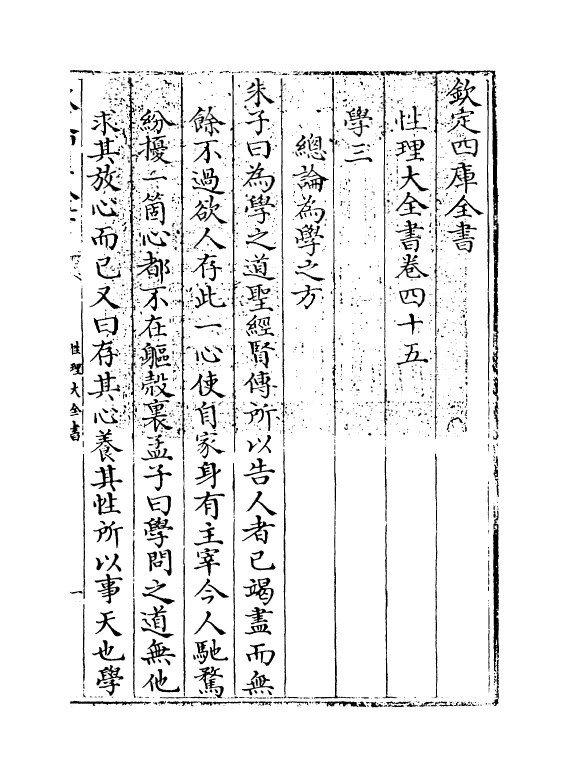 欽定四庫全書
性理大全書卷四十五
學三
總論為學之方
朱子曰為學之道聖經賢傳所以告人者已竭盡而無
餘不過欲人存此一心使自家身有主宰今人馳騖
紛擾一箇心都不在軀殼裏孟子曰學問之道無他
求其放心而已又曰存其心養其性所以事天也學
性理大全書
一